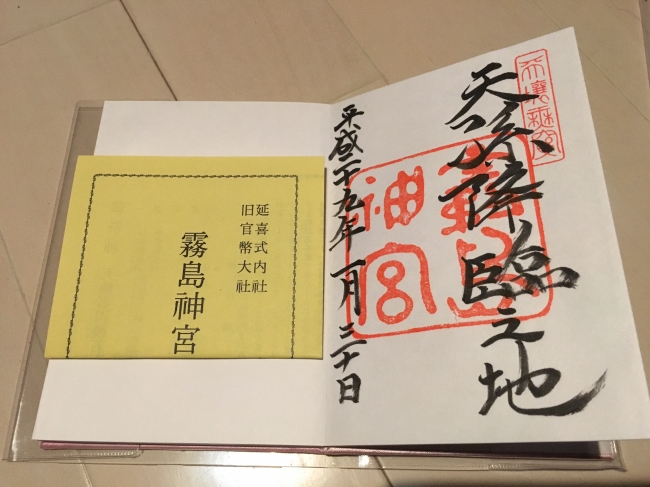 天壤無窮
天孫降臨之地
霧島
神宮
平成二十九年一月三十日
延喜式内社
旧官幣大社
霧島神宮